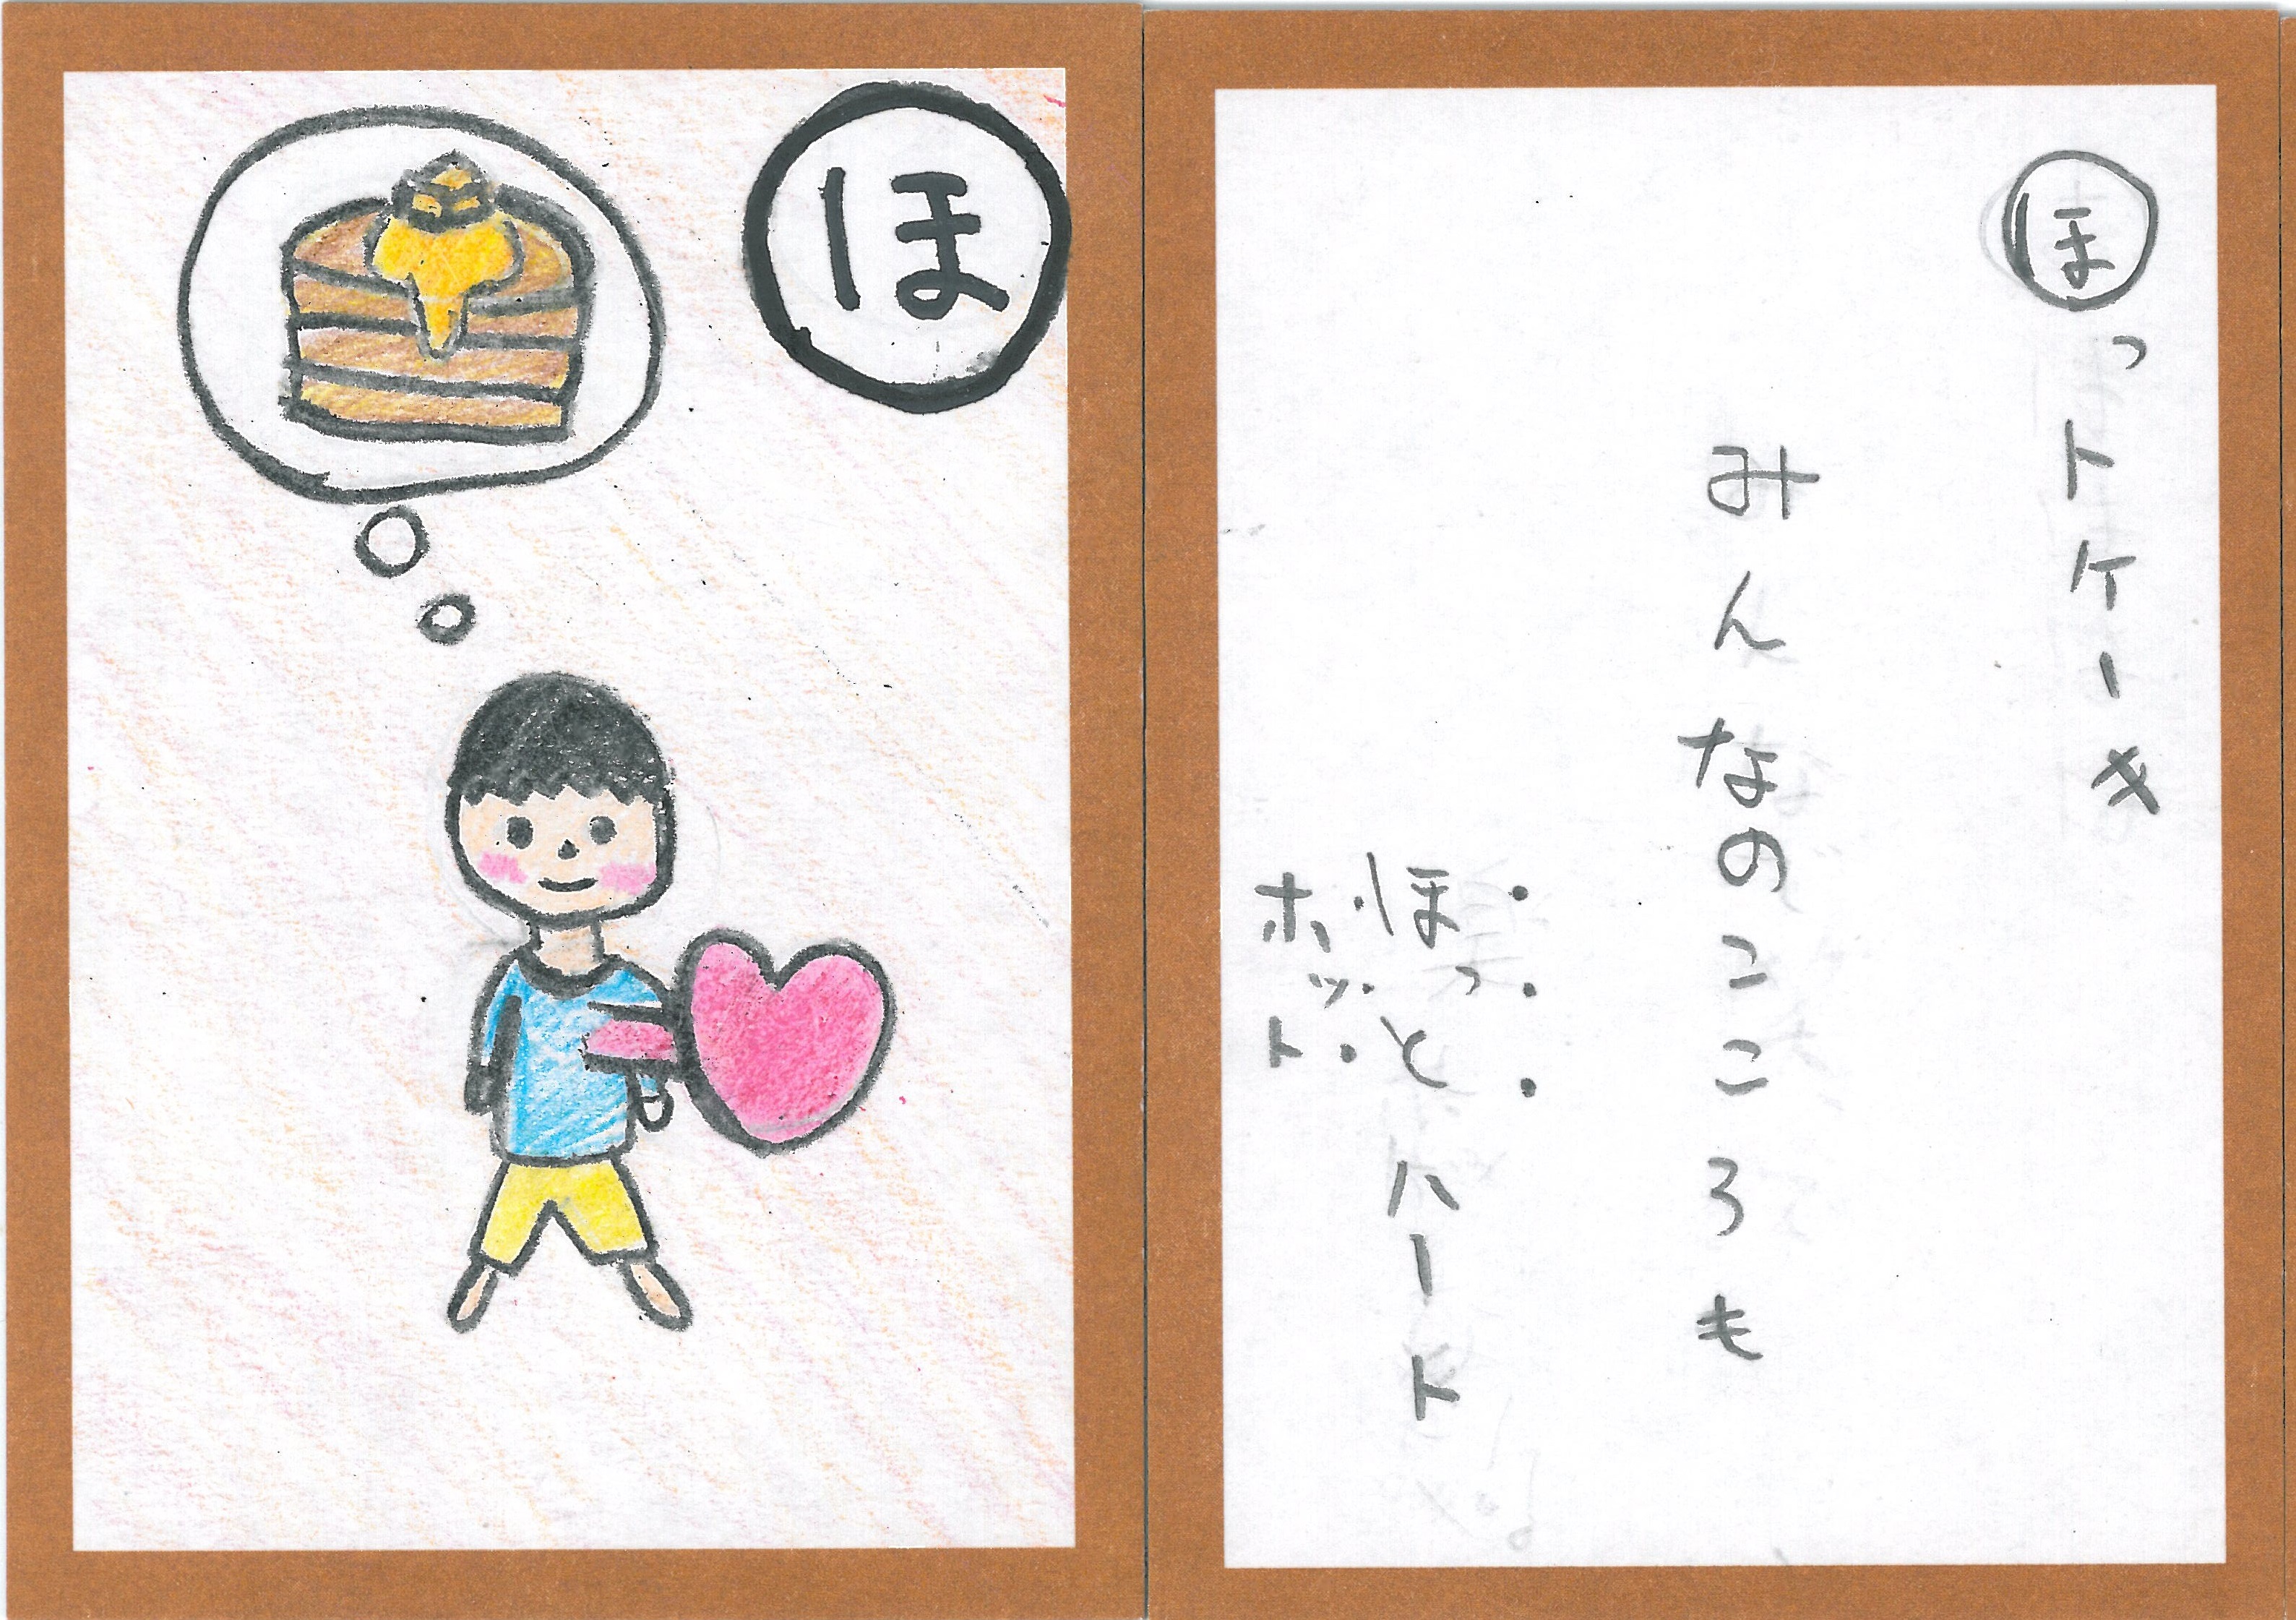 ほ
ほっトケーキ
みんなのこころも
ほっとハート
ホット